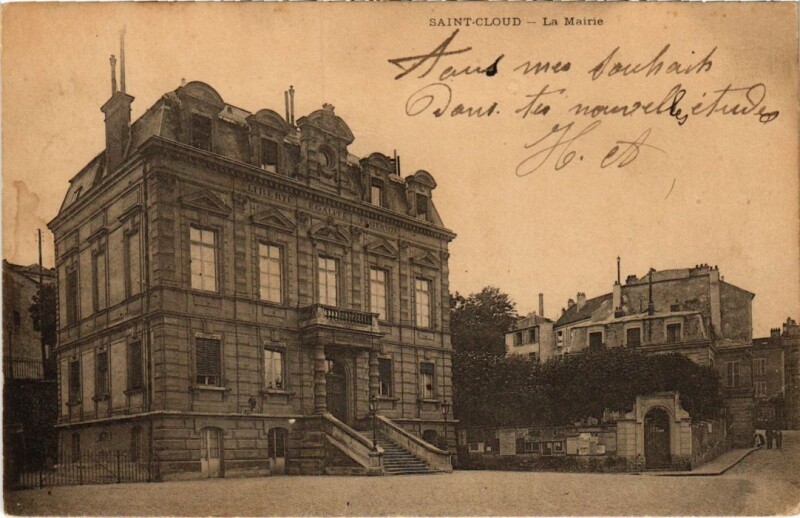 SAINT-CLOUD — La Mairie
Tous mes souhaits
Dans tes nouvelles études
H. A
LIBERTÉ EGALITÉ